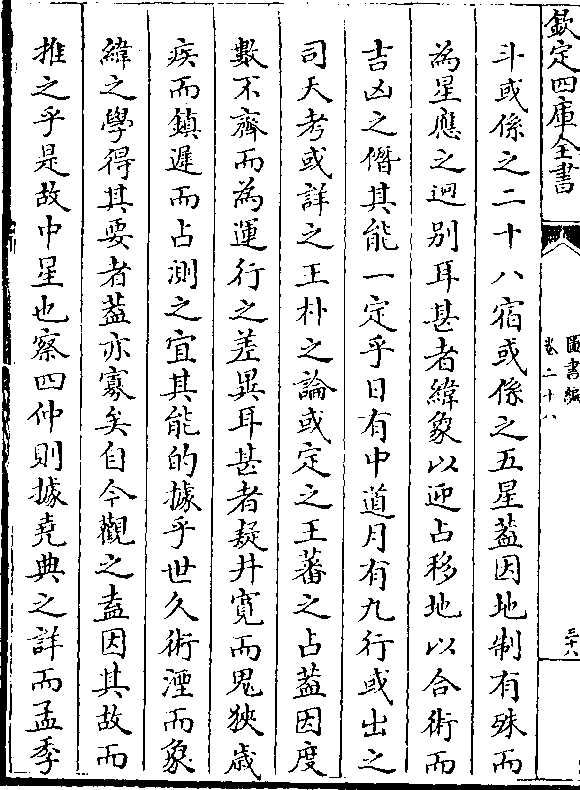 欽定四庫全書
圖書編
卷二十八
三十八
斗或係之二十八宿或係之五星蓋因地制有殊而
為星應之迥别耳甚者緯象以迎占移地以合術而
吉凶之僭其能一定乎日有中道月有九行或出之
司天考或詳之王朴之論或定之王蕃之占蓋因度
數不齊而為運行之差異耳甚者疑井寛而鬼狹歳
疾而鎮遲而占測之宜其能的據乎世久術湮而象
緯之學得其要者蓋亦寡矣自今觀之盍因其故而
推之乎是故中星也察四仲則據堯典之詳而孟季